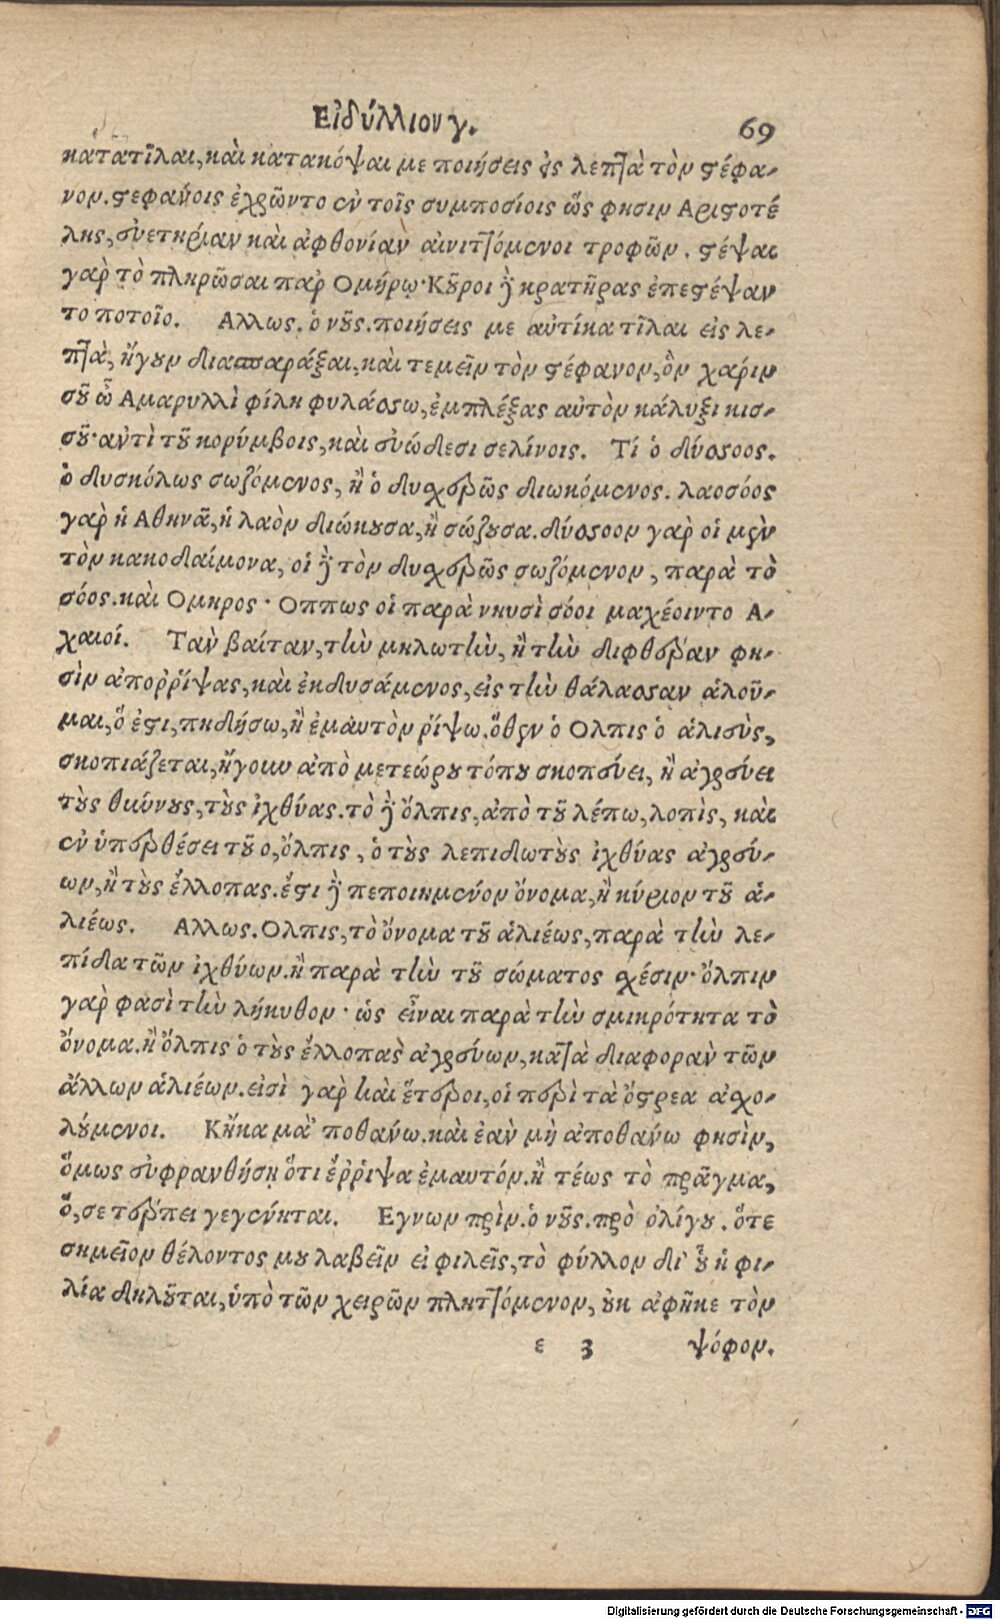 Εἰδύλλιον γ. 69
κατατῖλαι, καὶ κατακόψαι με ποιήσεις ἐς λεπτὰ τὸν στέφα-
νον. στεφάνοις ἐχρῶντο ἐν τοῖς συμποσίοις ὥς φησιν Αριστοτέ
λης, εὐετηρίαν καὶ ἀφθονίαν αἰνιττόμενοι τροφῶν. στέψαι
γὰρ τὸ πληρῶσαι παρ Ομήρῳ· Κοῦροι δὲ κρατῆρας ἐπεστέψαν
το ποτοῖο. Αλλως. ὁ νοῦς. ποιήσεις με αὐτίκα τῖλαι εἰς λε-
πτὰ, ἤγουν διασπαράξαι, καὶ τεμεῖν τὸν στέφανον, ὃν χάριν
σοῦ ὦ Αμαρυλλὶ φίλη φυλάσσω, ἐμπλέξας αὐτὸν κάλυξι κισ-
σοῦ· αντὶ τοῦ κορύμβοις, καὶ εὐώδεσι σελίνοις. Τί ὁ δύσσοος.
ὁ δυσκόλως σωζόμενος, ἢ ὁ δυχερῶς διωκόμενος. λαοσόος
γὰρ ἡ Αθηνᾶ, ἡ λαὸν διώκουσα, ἢ σώζουσα. δύσσοον γὰρ οἱ μὲν
τὸν κακοδαίμονα, οἱ δὲ τὸν δυχερῶς σωζόμενον, παρὰ τὸ
σόος. καὶ Ομηρος· Οππως οἱ παρὰ νηυσὶ σόοι μαχέοιντο Α-
χαιοί. Ταν βαίταν, τὴν μηλωτὴν, ἢ τὴν διφθέραν φη-
σὶν ἀποῤῥίψας, καὶ ἐκδυσάμενος, εἰς τὴν θάλασσαν ἁλοῦ-
μαι, ὅ ἐστι, πηδήσω, ἢ ἐμαυτὸν ῥίψω. ὅθεν ὁ Ολπις ὁ ἁλιεὺς,
σκοπιάζεται, ἤγουν ἀπὸ μετεώρου τόπου σκοπεύει, ἢ ἀγρεύει
τοὺς θύννους, τοὺς ἰχθύας. τὸ δὲ ὄλπις, ἀπὸ τοῦ λέπω, λοπὶς, καὶ
ἐν ὑπερθέσει τοῦ ο, ὄλπις, ὁ τοὺς λεπιδωτοὺς ἰχθύας ἀγρεύ-
ων, ἢ τοὺς ἔλλοπας. ἔστι δὲ πεποιημένον ὄνομα, ἢ κύριον τοῦ ἁ-
λιέως. Αλλως. Ολπις, τὸ ὄνομα τοῦ ἁλιέως, παρὰ τὴν λε-
πίδα τῶν ἰχθύων. ἢ παρὰ τὴν τοῦ σώματος σχέσιν· ὄλπιν
γὰρ φασὶ τὴν λήκυθον· ὡς εἶναι παρὰ τὴν σμικρότητα τὸ
ὄνομα. ἢ ὄλπις ὁ τοὺς ἔλλοπας ἀγρεύων, κατὰ διαφορὰν τῶν
ἄλλων ἁλιέων. εἰσὶ γὰρ καὶ ἕτεροι, οἱ περὶ τὰ ὄστρεα ἀσχο-
λούμενοι. Κἤκα μὰ ποθανω. καὶ ἐὰν μὴ ἀποθανω φησὶν,
ὅμως εὐφρανθήσῃ ὅτι ἔῤῥιψα ἐμαυτόν. ἢ τέως τὸ πρᾶγμα,
ὅ, σε τέρπει γεγένηται. Εγνων πρὶν. ὁ νοῦς. πρὸ ὀλίγου. ὅτε
σημεῖον θέλοντος μου λαβεῖν εἰ φιλεῖς, τὸ φύλλον δι' οὗ ἡ φι-
λία δηλοῦται, ὑπὸ τῶν χειρῶν πληττόμενον, οὐκ ἀφῆκε τὸν
ε 3 ψόφον.
Digitalisierung gefördert durch die Deutsche Forschungsgemeinschaft - DFG